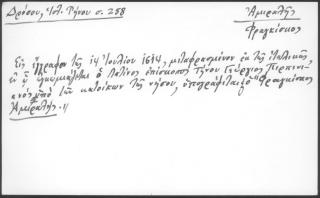 Δρόσου, Ἱστ. Τήνου σ. 258
Ἀμιραλῆς
Φραγκίσκος
Εἰς ἔγγραφον τῆς 14 Ἰουλίου 1694, μεταφρασμένον ἐκ τῆς Ἰταλικῆς
ἐν ᾧ ὁ Λατῖνος ἐπίσκοπος Τήνου Γεώργιος Περπινι-
ανὸς ὑπὸ τῶν κατοίκων τῆς νήσου, ὑπογράφεται ὁ Φραγκίσκος
Ἀμιράλης.